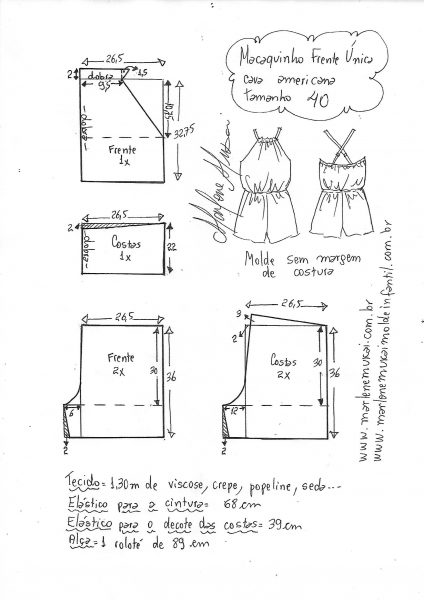 Macaquinho Frente Única
cava americana
tamanho 40
26,5
2
dobra
1,5
9,5
dobra
32,75
Frente
1x
Marlene Mukai
26,5
2
dobra
Costas
1x
22
Molde sem margem
de costura
26,5
Frente
2x
30
36
6
2
26,5
3
2
Costas
2x
30
36
12
2
www.marlenemukai.com.br
www.marlenemukaimoldeinfantil.com.br
Tecido= 1.30m de viscose, crepe, popeline, seda...
Elástico para a cintura= 68 cm
Elástico para o decote das costas= 39 cm
Alça= 1 rolotê de 89 cm